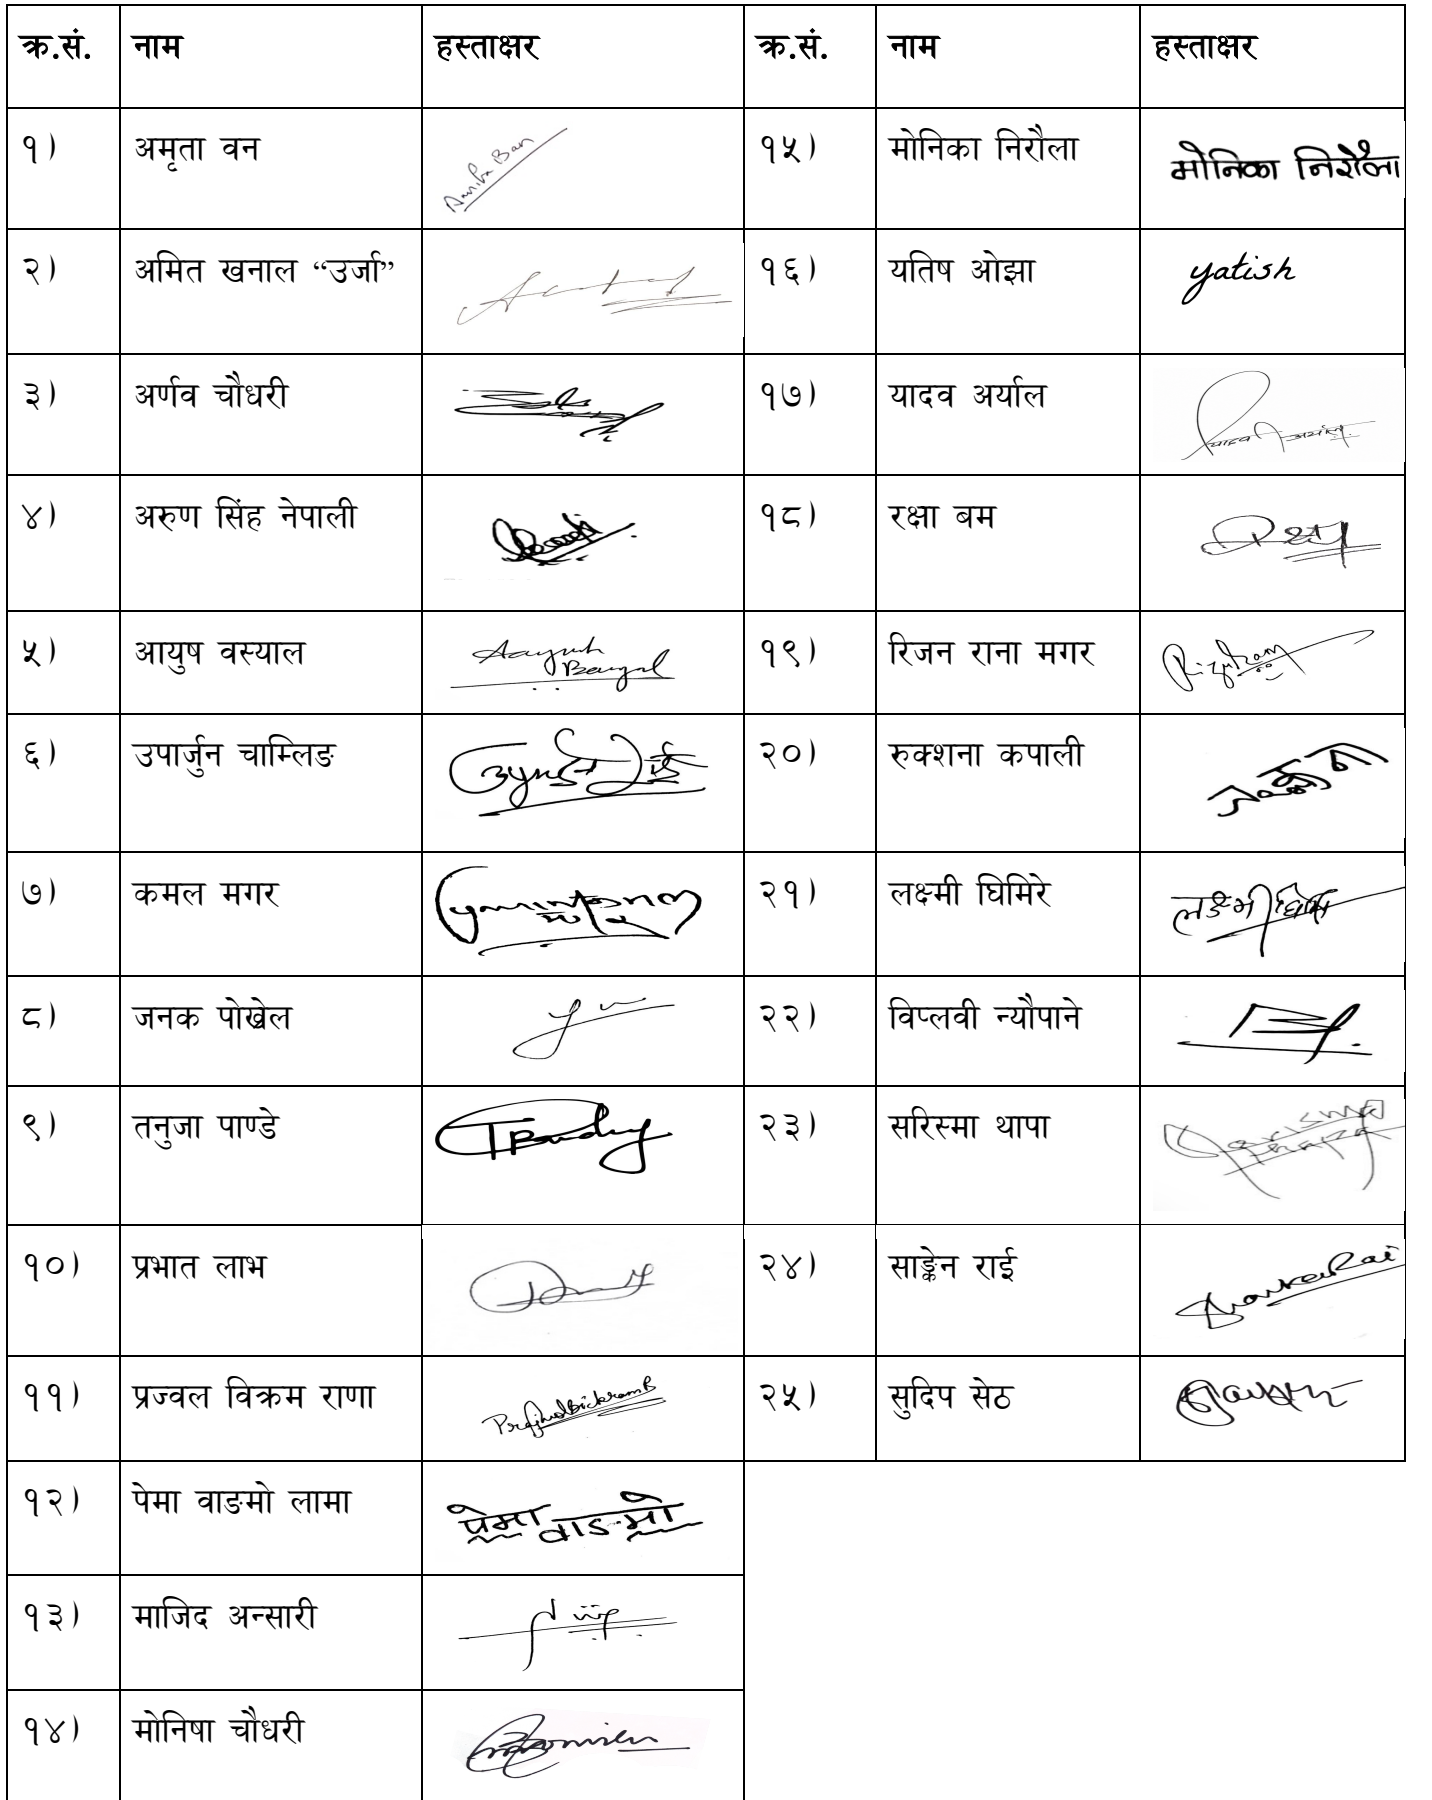 क्र.सं. नाम हस्ताक्षर क्र.सं. नाम हस्ताक्षर
१) अमृता वन Amrita Ban १५) मोनिका निरौला मोनिका निरौला
२) अमित खनाल “उर्जा” १६) यतिष ओझा yatish
३) अर्णव चौधरी १७) यादव अर्याल यादव अर्याल
४) अरुण सिंह नेपाली १८) रक्षा बम
५) आयुष वस्याल Aayush १९) रिजन राना मगर
६) उपार्जुन चाम्लिङ २०) रुक्शना कपाली
७) कमल मगर २१) लक्ष्मी घिमिरे लक्ष्मी घिमिरे
८) जनक पोख्रेल २२) विप्लवी न्यौपाने
९) तनुजा पाण्डे TPandey २३) सरिस्मा थापा
१०) प्रभात लाभ २४) साङ्केन राई
११) प्रज्वल विक्रम राणा २५) सुदिप सेठ
१२) पेमा वाङमो लामा पेमा वाङमो
१३) माजिद अन्सारी
१४) मोनिषा चौधरी